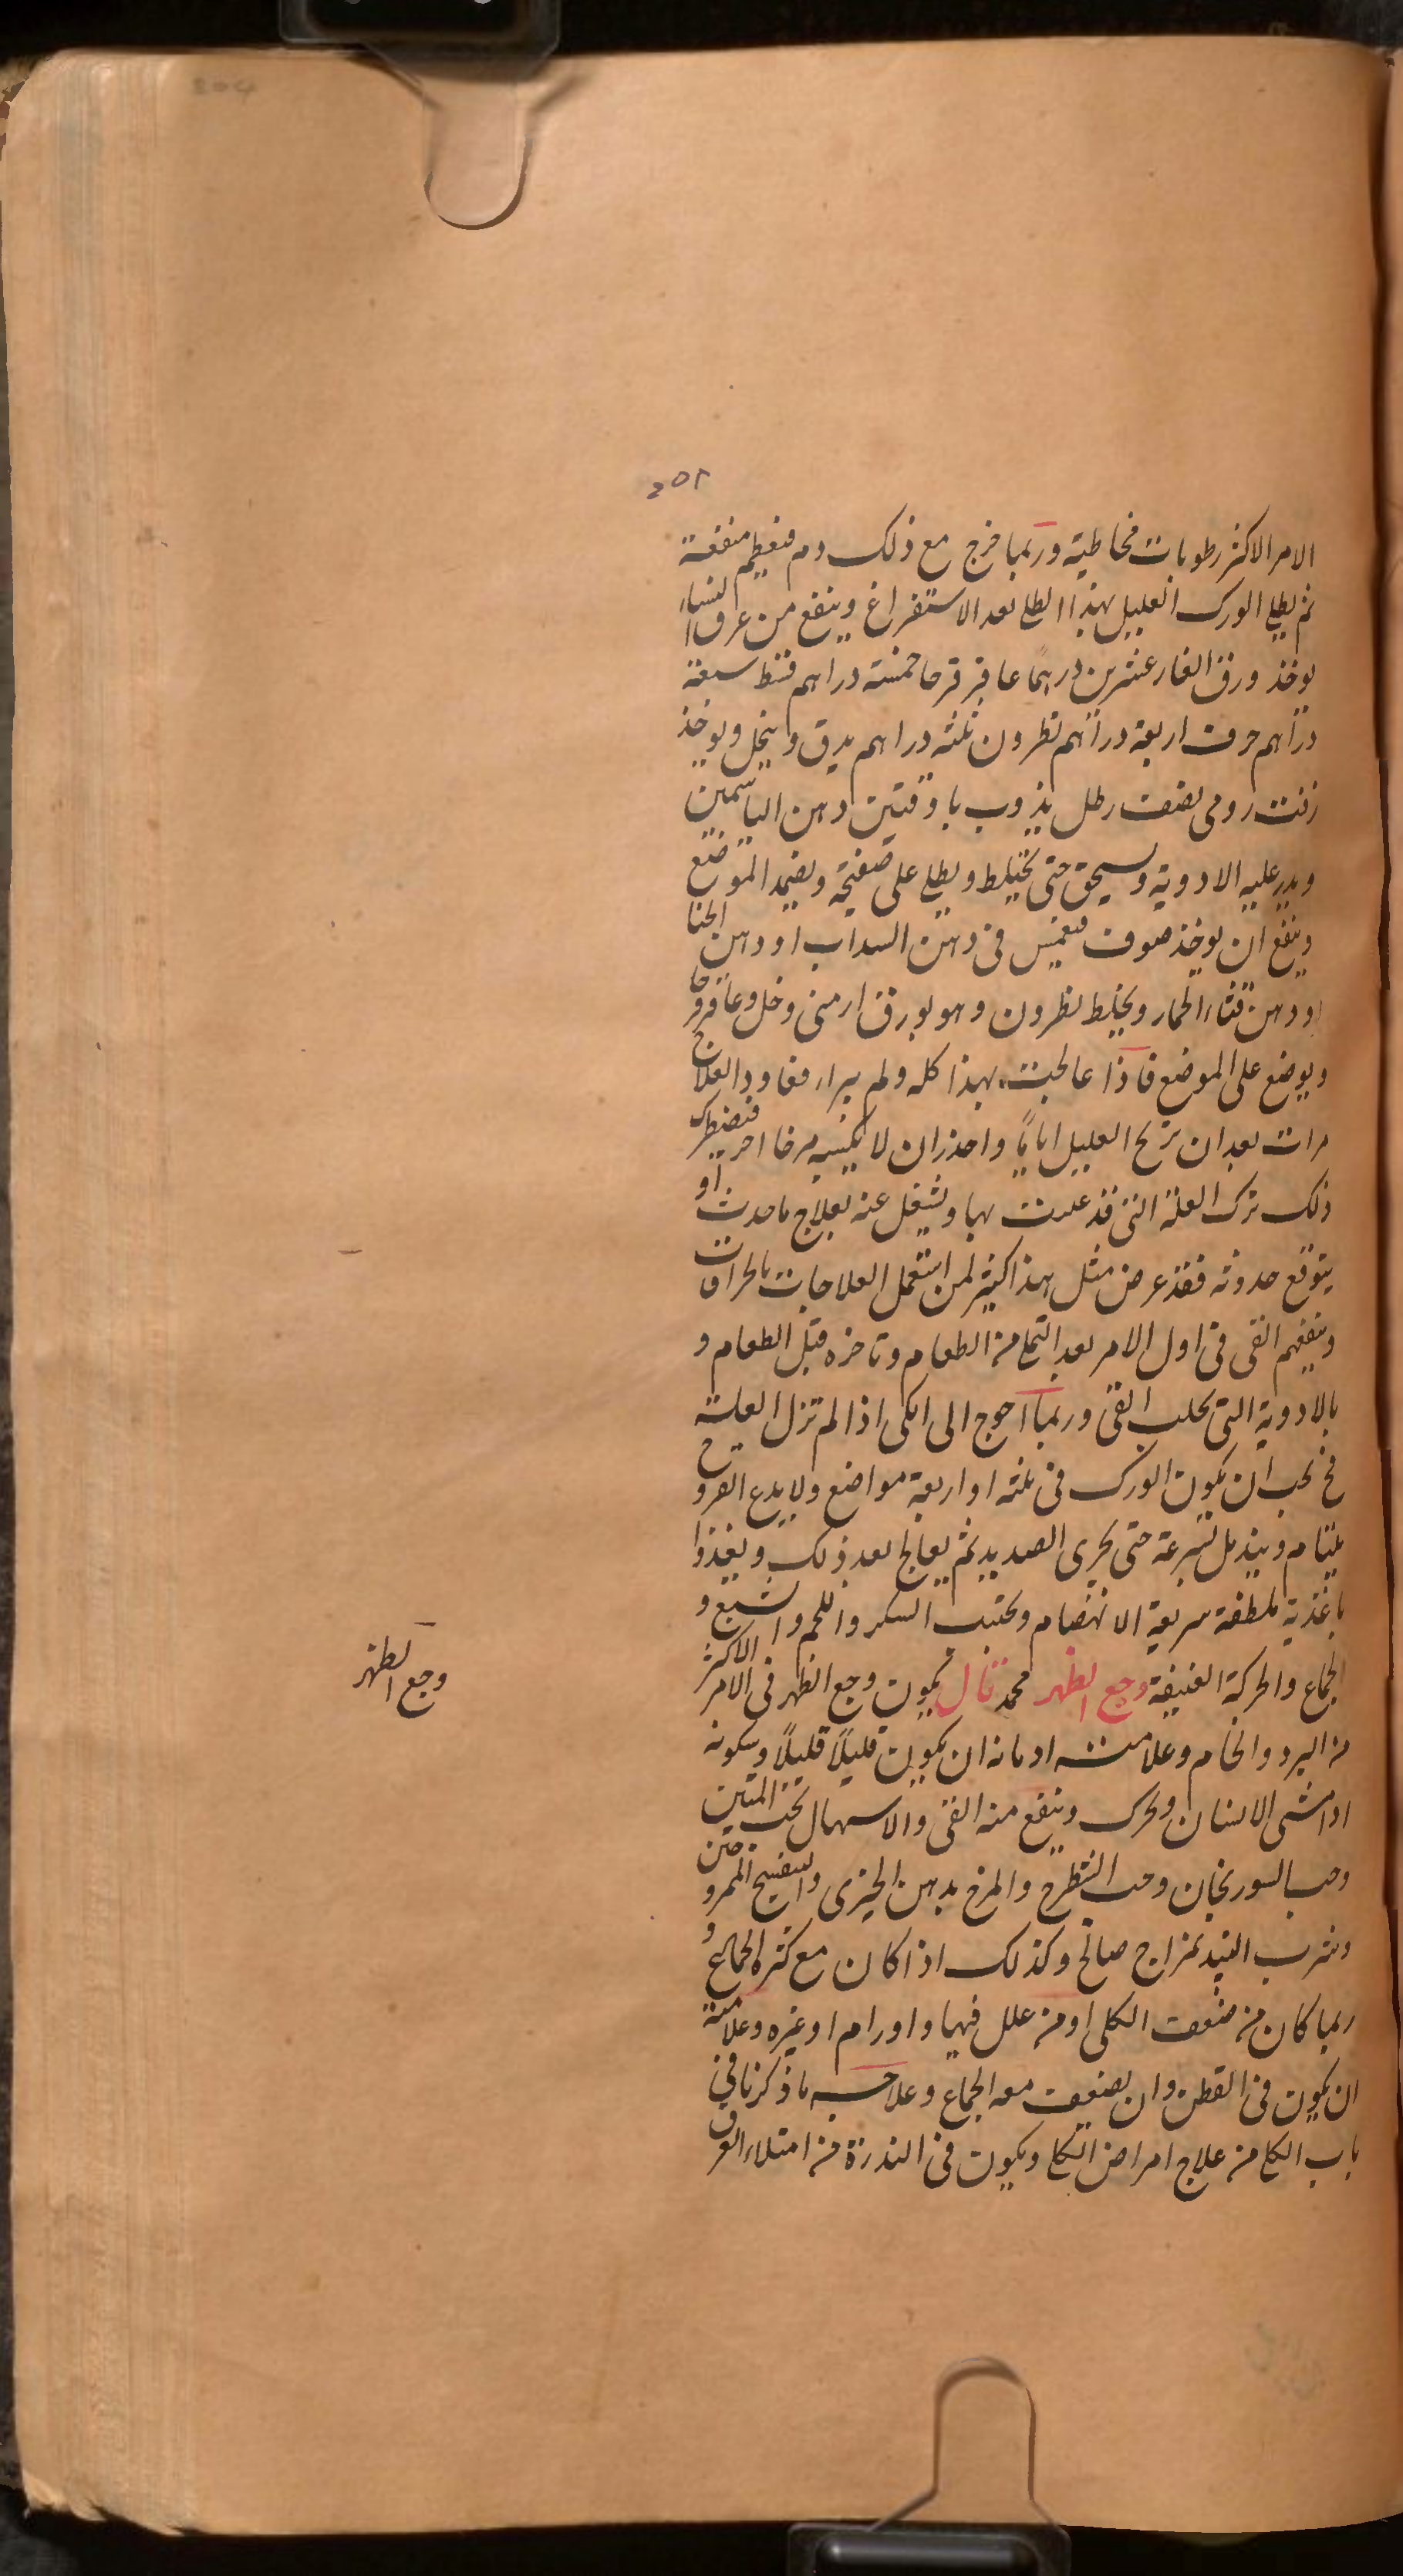 204
252
الامر الاكثر رطوبات مخاطية وربما خرج مع ذلك دم فيعظم منفعة
ثم يطلى الورك العليل بهذا الطلى بعد الاستفراغ وينفع من عرق النساء
يوخذ ورق الغار عشرين درهمًا عاقر قرحا خمسة دراهم قسط سبعة
دراهم حرف اربعة دراهم نطرون ثلثه دراهم يدق وينخل ويوخذ
زفت رومى نصف رطل يذوب باوقيتين دهن الياسمين
ويذر عليه الادوية ويسحق حتى يختلط ويطلى على صفيحة ويضمد الموضع
وينفع ان يوخذ صوف فيغمس فى دهن السداب او دهن الحنا
او دهن قثاء الحمار ويخلط نطرون وهو بورق ارمنى وخل وعاقرقرحا
ويوضع على الموضع فاذا عالجت بهذا كله ولم يبراء فعاود العلاج
مرات بعد ان تريح العليل اياما واحذر ان لا يكسبه مرضا اخر فيضطرك
ذلك ترك العلة التى قد عنيت بها وتشغل عنه بعلاج ما حدث او
يتوقع حدوثه فقد عرض مثل هذا كثير لمن استعمل العلاجات بالحرافات
وينفعهم القى فى اول الامر بعد التملى من الطعام وتاخره قبل الطعام و
بالادوية التى تجلب القى وربما احوج الى الكى اذا لم تزل العلة
فح يجب ان يكوى الورك فى ثلثه او اربعة مواضع ولا يدع القروح
يلتام ويندمل بسرعة حتى يجرى الصديد ثم يعالج بعد ذلك ويغذوا
باغذية ملطفة سريعة الانهضام ويجتنب السكر واللحم والشبع و
الجماع والحركة العنيفة وجع الظهر محمد قال يكون وجع الظهر فى الامر الاكثر
من البرد والخام وعلامته ادمانه ان يكون قليلًا قليلًا وسكونه
اذا مشى الانسان وتحرك وينفع منه القى والاسهال بحب المنتن
وحب السورنجان وحب الشيطرج والمرخ بدهن الخيرى والتفسيح الممروختين
وشرب النبيذ بمزاج صالح وكذلك اذا كان مع كثرة الجماع و
ربما كان من ضعف الكلى او من علل فيها واورام او غيره وعلامته
ان يكون فى القطن وان يضعف معه الجماع وعلاجه ما ذكرنا فى
باب الكلى من علاج امراض الكلى ويكون فى الندرة من امتلاء العرق
وجع الظهر